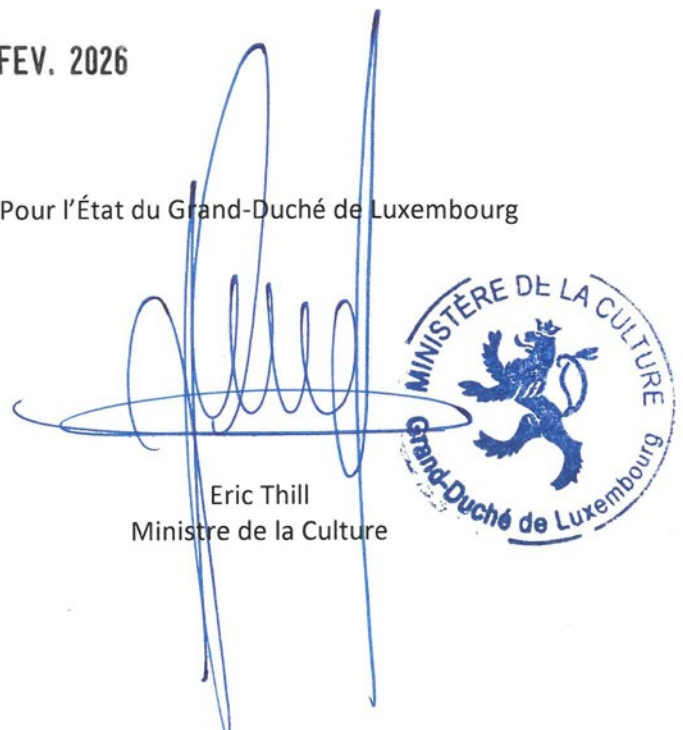 FEV. 2026
Pour l'État du Grand-Duché de Luxembourg
MINISTÈRE DE LA CULTURE
Grand-Duché de Luxembourg
Eric Thill
Ministre de la Culture